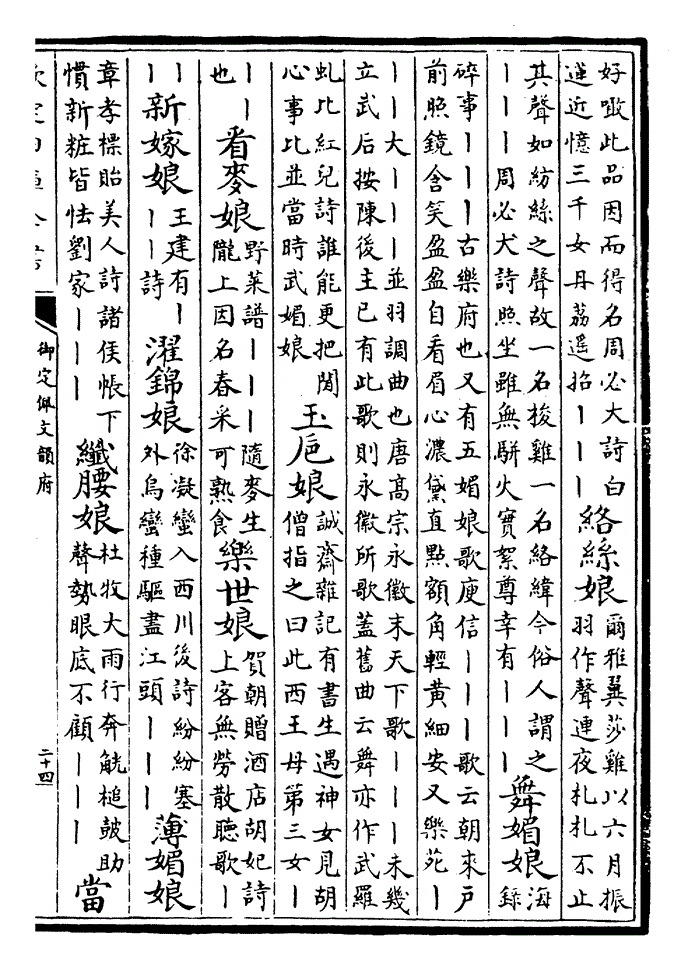 好噉此品因而得名周必大詩白
蓮近憶三千女丹荔遥招｜｜｜
絡絲娘
爾雅翼莎雞以六月振
羽作聲連夜札札不止
其聲如紡絲之聲故一名梭雞一名絡緯今俗人謂之
｜｜｜周必大詩照坐雖無駢火實絮尊幸有｜｜｜
舞媚娘
海
録
碎事｜｜｜古樂府也又有五媚娘歌庾信｜｜｜歌云朝來戶
前照鏡含笑盈盈自看眉心濃黛直點額角輕黄細安又樂苑｜
｜｜大｜｜｜並羽調曲也唐高宗永徽末天下歌｜｜｜未幾
立武后按陳後主已有此歌則永徽所歌蓋舊曲云舞亦作武羅
虬比紅兒詩誰能更把閒
心事比並當時武媚娘
玉巵娘
誠齋雜記有書生遇神女見胡
僧指之曰此西王母第三女｜
｜｜
也
看麥娘
野菜譜｜｜｜隨麥生
隴上因名春采可熟食
樂世娘
賀朝贈酒店胡妃詩
上客無勞散聽歌｜
｜
｜
新嫁娘
王建有｜
｜｜詩
濯錦娘
徐凝蠻入西川後詩紛紛塞
外烏蠻種驅盡江頭｜｜｜
薄媚娘
章孝標貽美人詩諸侯帳下
慣新粧皆怯劉家｜｜｜
纖腰娘
杜牧大雨行奔觥槌鼓助
聲勢眼底不顧｜｜｜
當
欽定四庫全書
御定佩文韻府
二十四